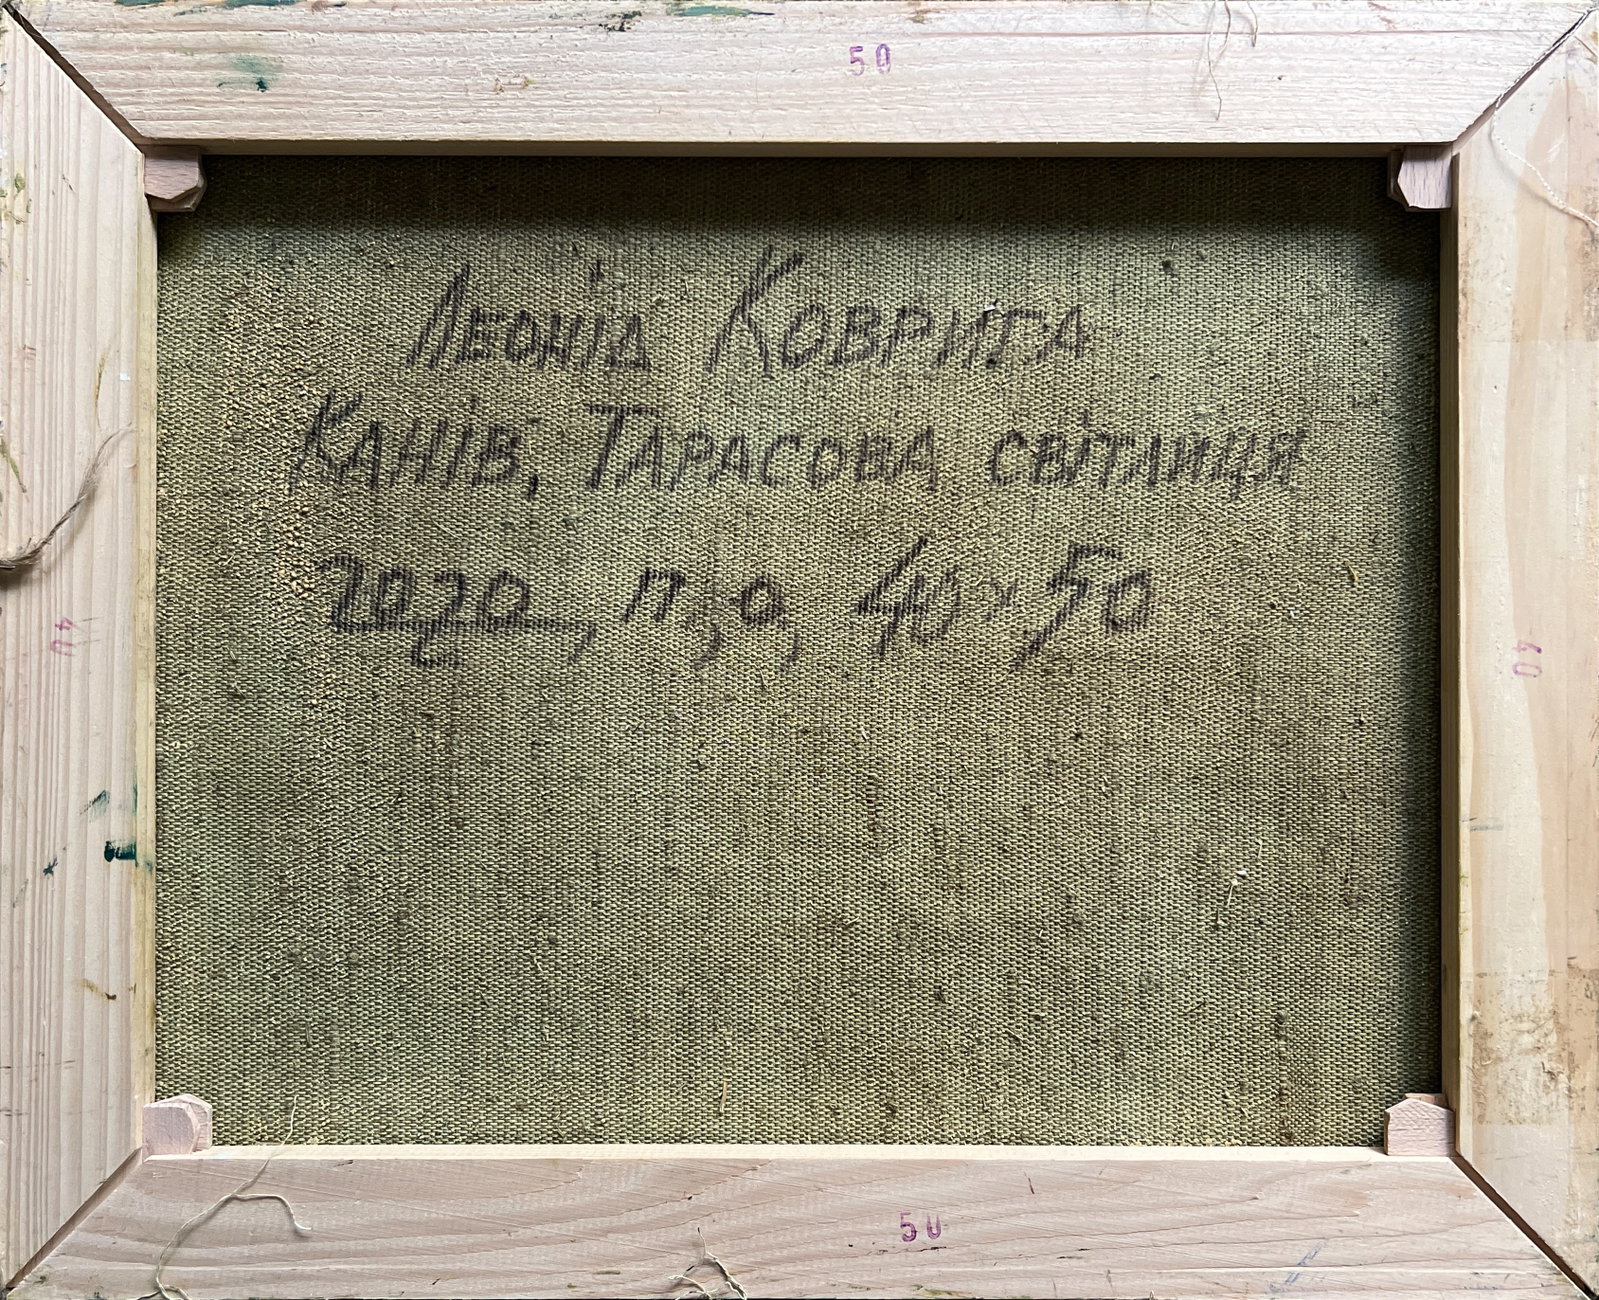 50
Леонід Коврига
Канів, Тарасова світлиця
2020, п, о, 40 x 50
40
40
50